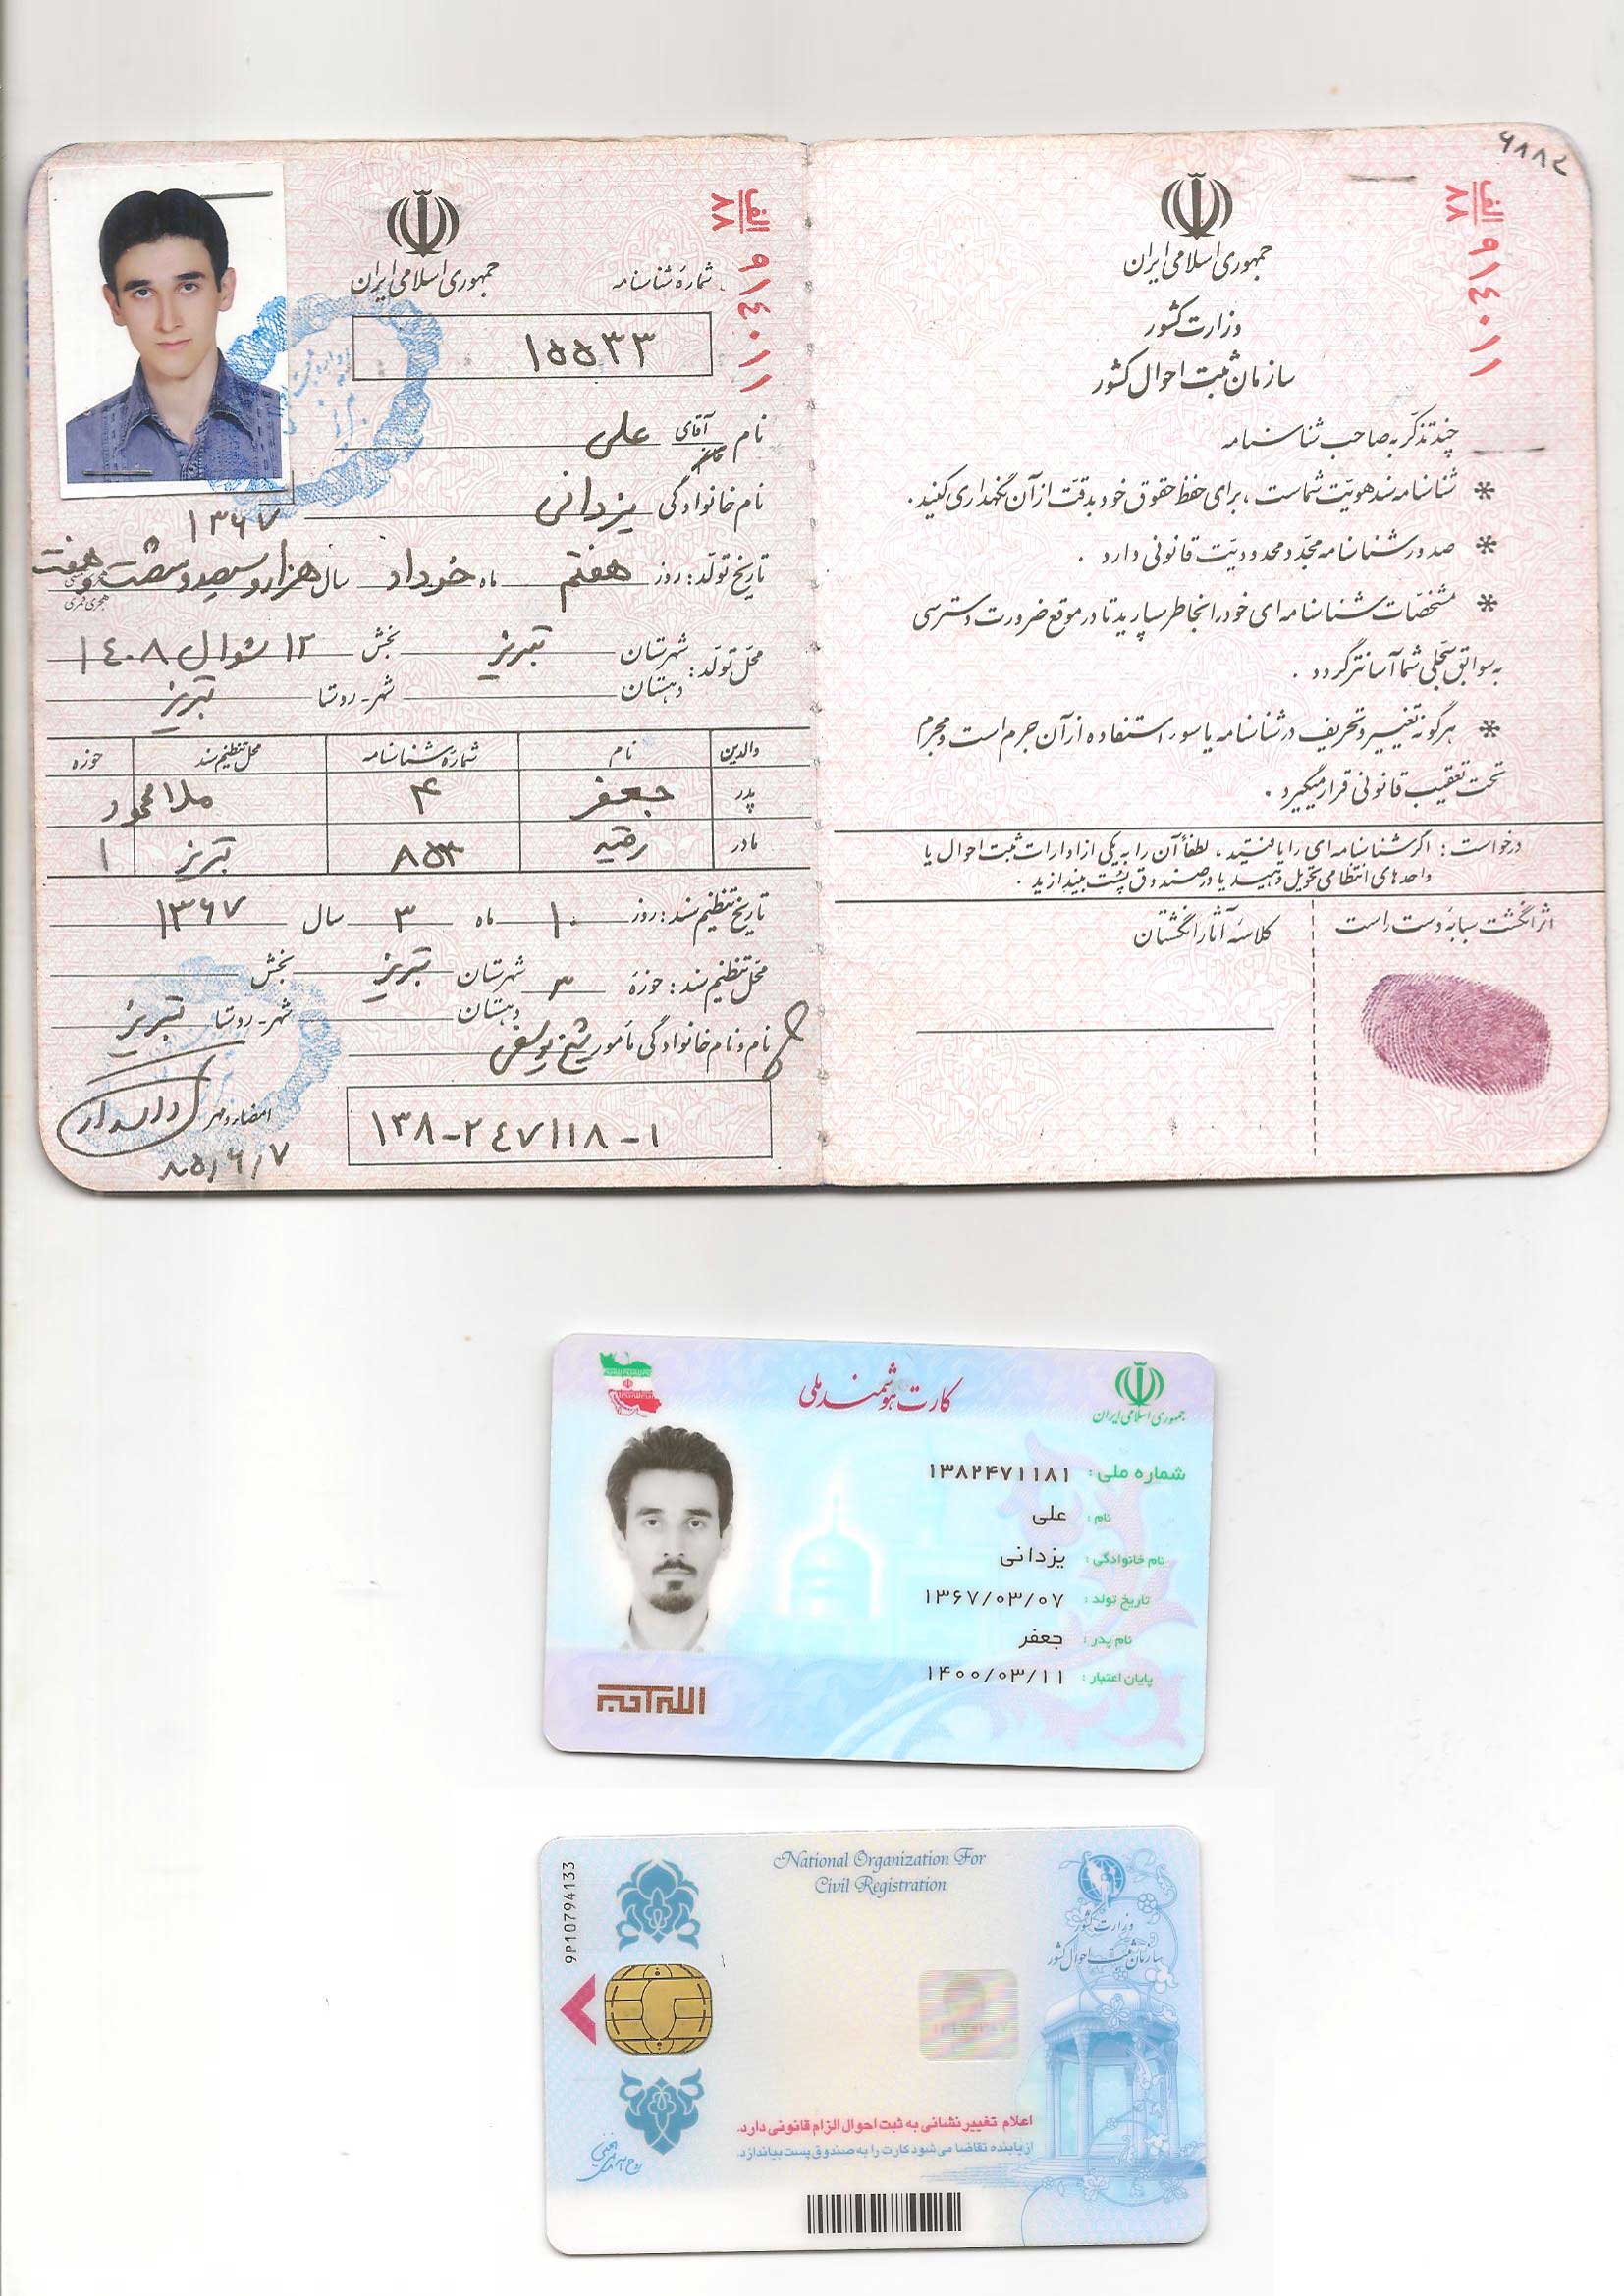 ۶۸۸۲
الف
۸۸
۹۱۴۰۱۱
جمهوری اسلامی ایران
وزارت کشور
سازمان ثبت احوال کشور
چند تذکر به صاحب شناسنامه
* شناسنامه سند هویت شماست ، برای حفظ حقوق خود بدقت از آن نگهداری کنید .
* صدور شناسنامه مجدد محدودیت قانونی دارد .
* مشخصات شناسنامه ای خود را بخاطر بسپارید تا در موقع ضرورت دسترسی
به سوابق سجلی شما آسانتر گردد .
* هرگونه تغییر و تحریف در شناسنامه یا سوء استفاده از آن جرم است و مجرم
تحت تعقیب قانونی قرار میگیرد .
درخواست : اگر شناسنامه ای را یافتید ، لطفاً آن را به یکی از ادارات ثبت احوال یا
واحدهای انتظامی تحویل دهید یا در صندوق پست بیندازید .
اثر انگشت سبابه دست راست
کلاسه آثار انگشتان
الف
۸۸
۹۱۴۰۱۱
جمهوری اسلامی ایران
شماره شناسنامه
۱۵۵۳۳
نام آقای علی
نام خانوادگی یزدانی
۱۳۶۷
تاریخ تولد : روز هفتم ماه خرداد سال هزار و سیصد و شصت و هفت
هجری قمری
محل تولد : شهرستان تبریز بخش ۱۲ شوال ۱۴۰۸
دهستان شهر - روستا تبریز
والدین نام شماره شناسنامه محل تنظیم سند حوزه
پدر جعفر ۴ ملامحمود
مادر رقیه ۸۵۳ تبریز ۱
تاریخ تنظیم سند : روز ۱۰ ماه ۳ سال ۱۳۶۷
محل تنظیم سند : حوزه ۳ شهرستان تبریز بخش
دهستان شهر - روستا تبریز
نام و نام خانوادگی مأمور
امضاء و مهر
۸۵/۶/۷
۱۳۸-۲۴۷۱۱۸-۱
کارت هوشمند ملی
جمهوری اسلامی ایران
شماره ملی : ۱۳۸۲۴۷۱۱۸۱
نام : علی
نام خانوادگی : یزدانی
تاریخ تولد : ۱۳۶۷/۰۳/۰۷
نام پدر : جعفر
پایان اعتبار : ۱۴۰۰/۰۳/۱۱
الله اکبر
9P10794133
National Organization For
Civil Registration
وزارت کشور
سازمان ثبت احوال کشور
اعلام تغییر نشانی به ثبت احوال الزام قانونی دارد.
از یابنده تقاضا می شود کارت را به صندوق پست بیاندازد.